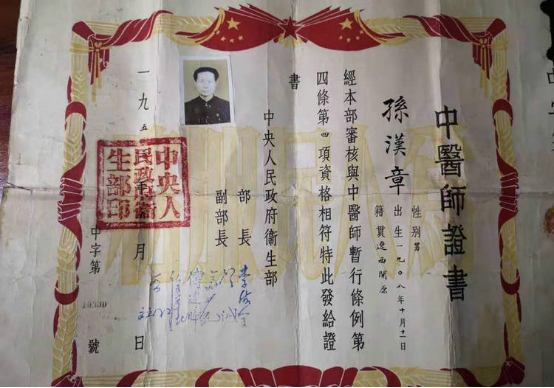 中醫師證書
孫漢章
性别 男
出生 一九〇八年十月十一日
籍貫 遼西開原
經本部審核與中醫師暫行條例第
四條第四項資格相符特此發給證
書
中央人民政府衞生部
部長
副部長
一九五
月
日
中字第
19330
號
中央人
民政府衞
生部印